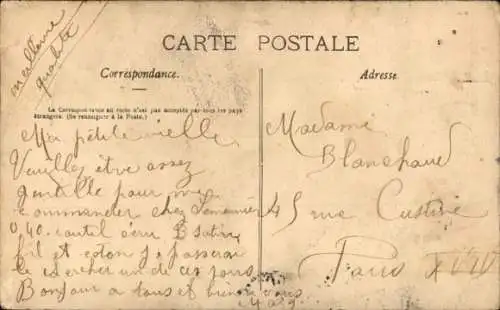 meilleure
qualité
CARTE POSTALE
Correspondance.
Adresse
La Correspondance au recto n'est pas acceptée par tous les pays
étrangers. (Se renseigner à la Poste.)
Ma petite vielle
Veuillez être assez
gentille pour me
commander chez
0,40 coutil écru B satin
fil et coton je passerai
le chercher un de ces jours
Bonjour a tous et
Madame
Blanchaud
45 rue Custine
Paris XVIII